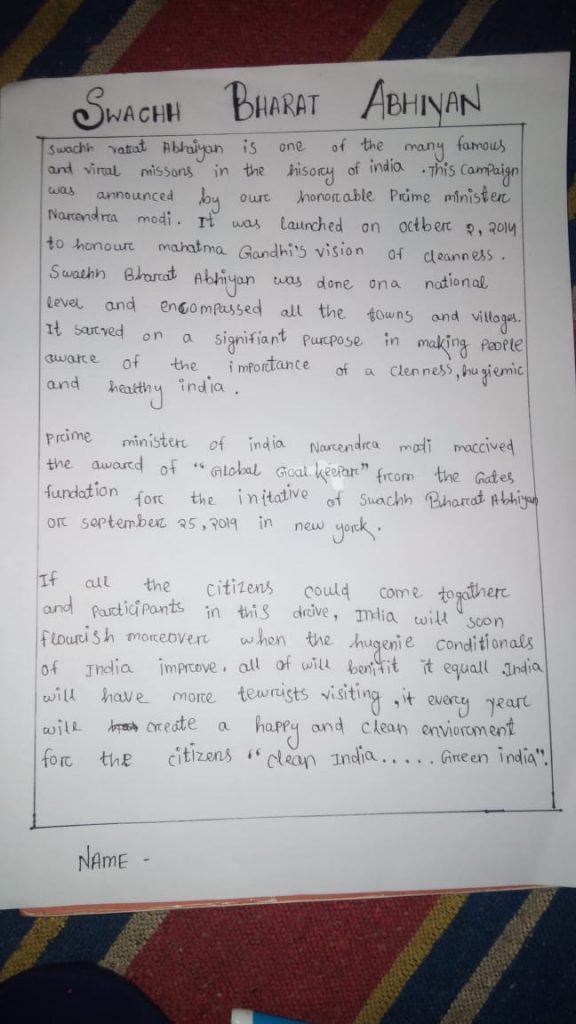 SWACHH BHARAT ABHIYAN
Swachh ratat Abhaiyan is one of the many famous
and viral missons in the hisorcy of india . This Campaign
was announced by ourc honorcable Prime ministerc
Narcendrca modi. It was launched on octberc 2, 2014
to honourc mahatma Gandhi's vision of cleanness.
Swachh Bharcat Abhiyan was done ona national
level and encompassed all the towns and villages.
It sarcved on a signifiant purcpose in making People
awarce of the imporctance of a clenness, hugiemic
and healthy india.
Prcime ministerc of india Narcendrca modi maccived
the awarcd of "Global Goal keeparc" frcom the Gates
fundation forc the initative of Swachh Bharcat Abhiyan
orc septemberc 25, 2019 in new yorck.
If all the citizens could come togatherc
and Parcticipants in this drcive, India will soon
flourcish morceoverc when the hugenie conditionals
of India imprcove. all of will benifit it equall .India
will have morce tewrcists visiting , it evercy yearc
will crceate a happy and clean enviorcment
forc the citizens "clean India..... Grceen india".
NAME -